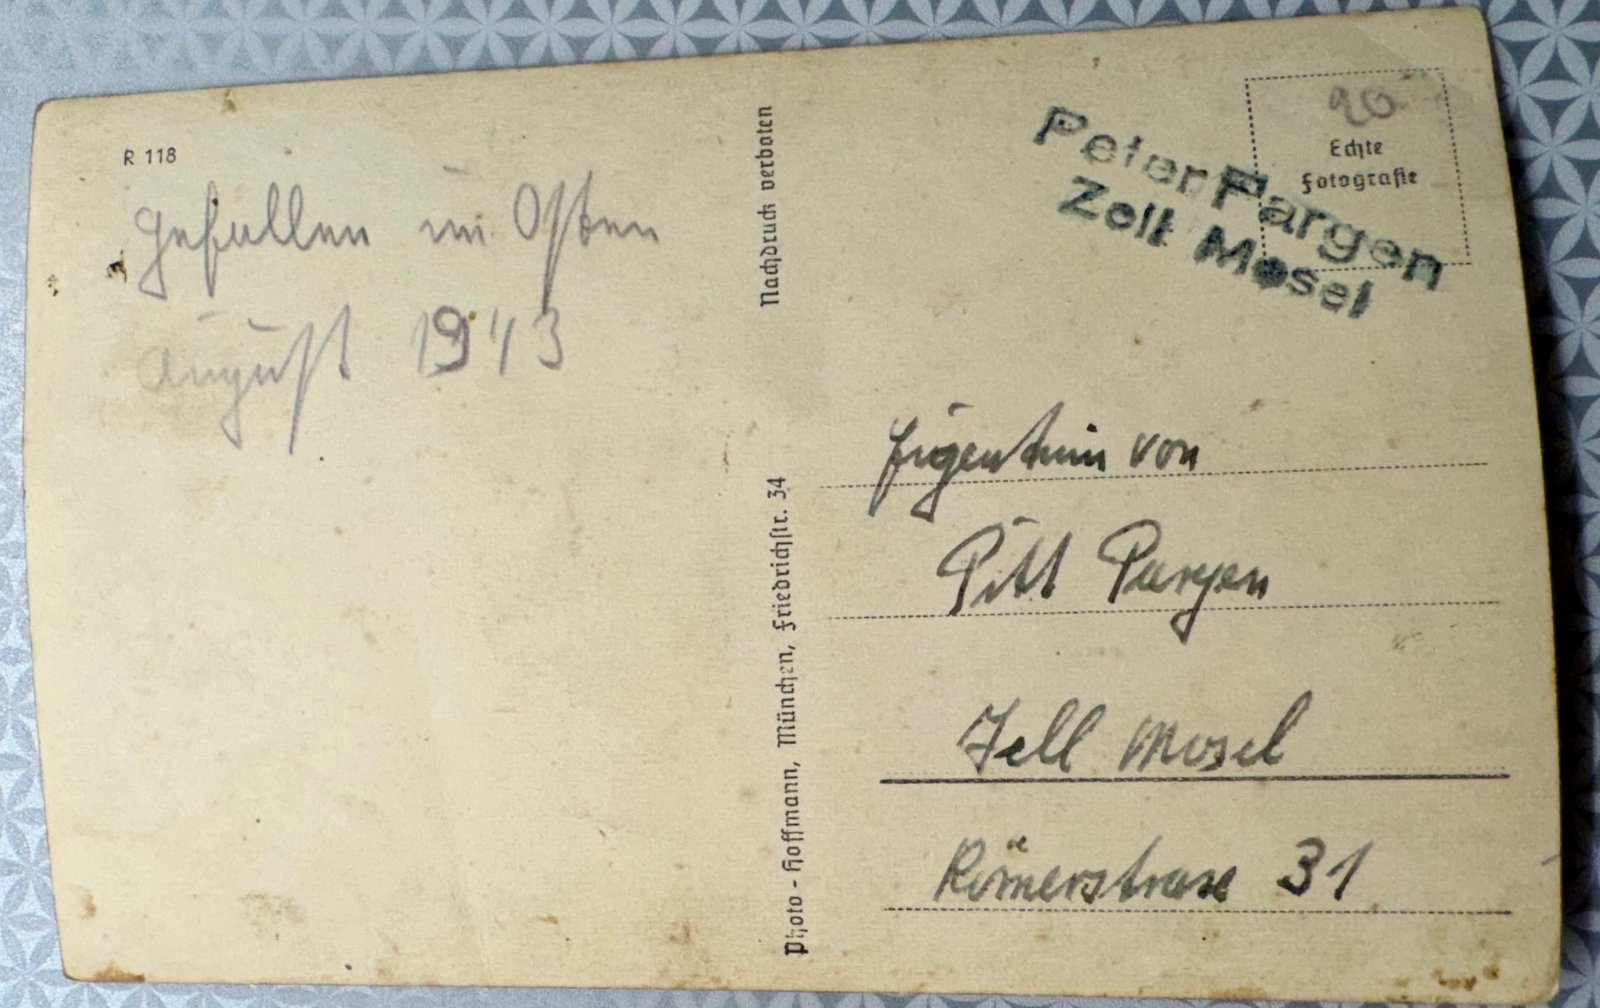 R 118
Gefallen im Osten
August 1943
Nachdruck verboten
Photo-Hoffmann, München, Friedrichstr. 34
90
Echte
Fotografie
Peter Pargen
Zell Mosel
Eigentum von
Pitt Pargen
Zell Mosel
Römerstrase 31